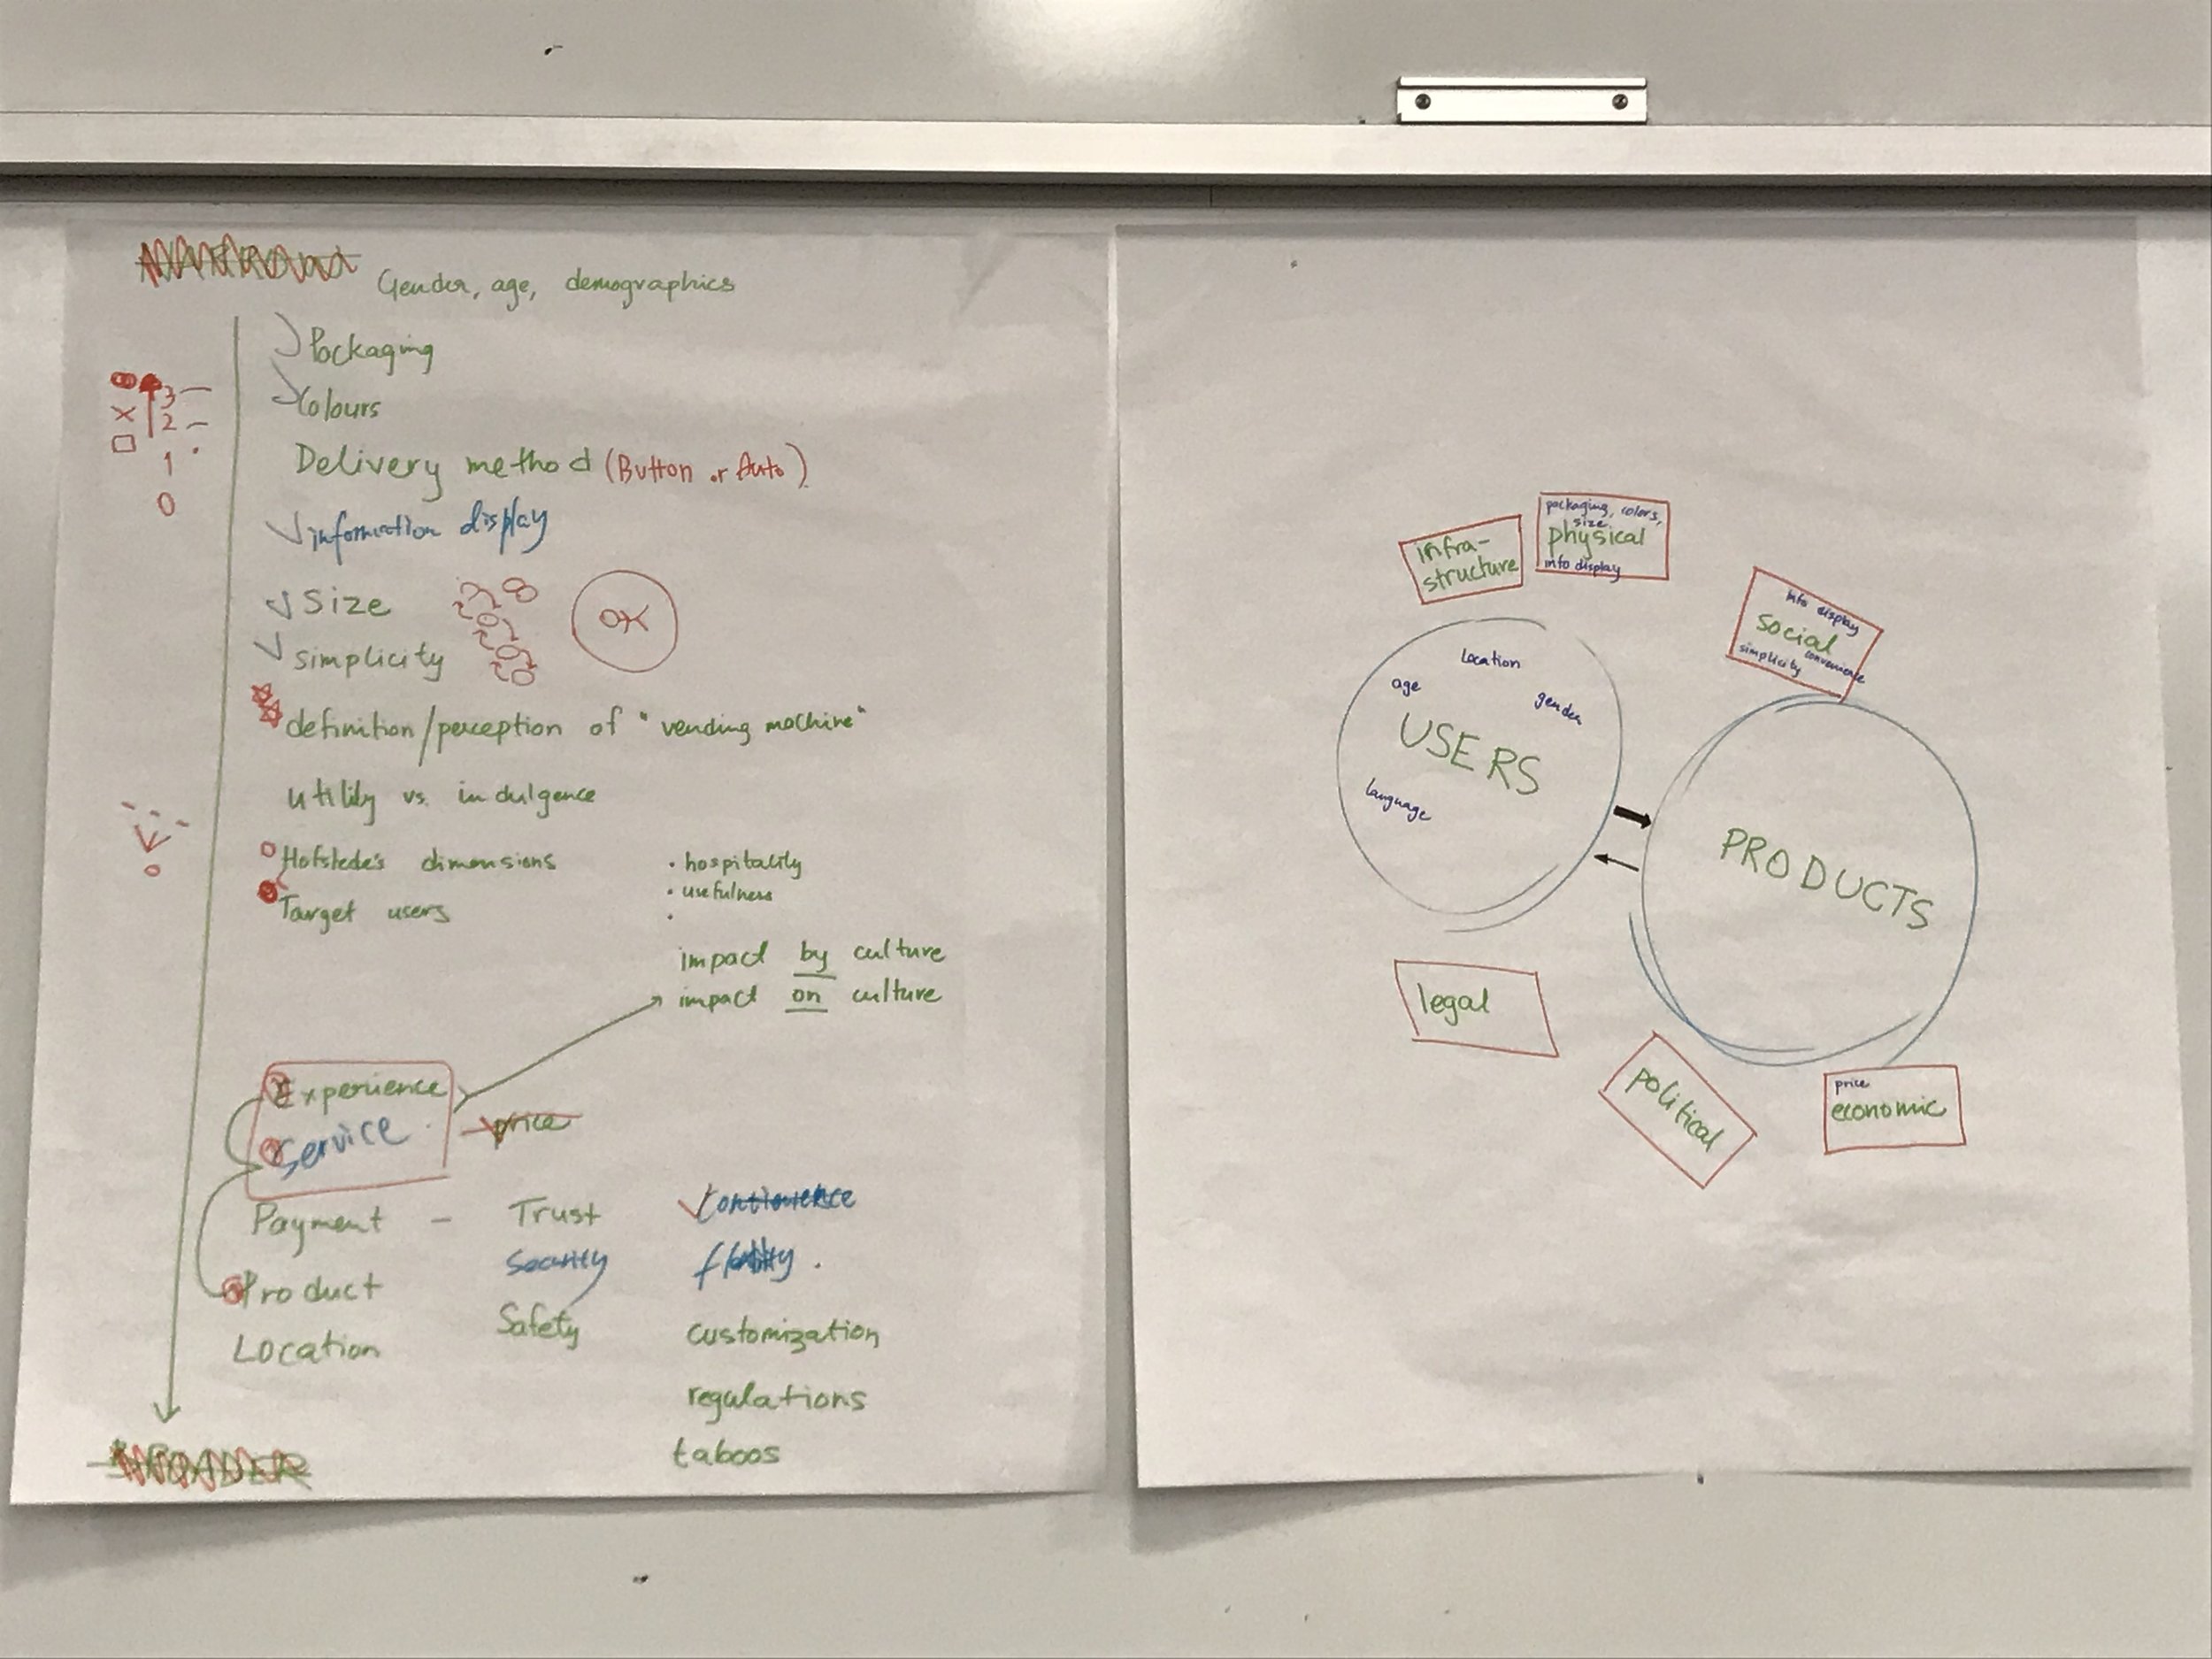 Gender, age, demographics
Packaging
Colours
3
2
1
0
Delivery method (Button or Auto)
information display
Size
OK
simplicity
definition/perception of "vending machine"
utility vs. indulgence
Hofstede's dimensions
Target users
• hospitality
• usefulness
•
impact by culture
impact on culture
Experience
Service
price
Payment - Trust
Security
Safety
Product
Location
customization
regulations
taboos
infra-
structure
packaging, colors,
size
physical
info display
info display
social
convenience
simplicity
location
age
gender
USERS
language
PRODUCTS
legal
political
price
economic